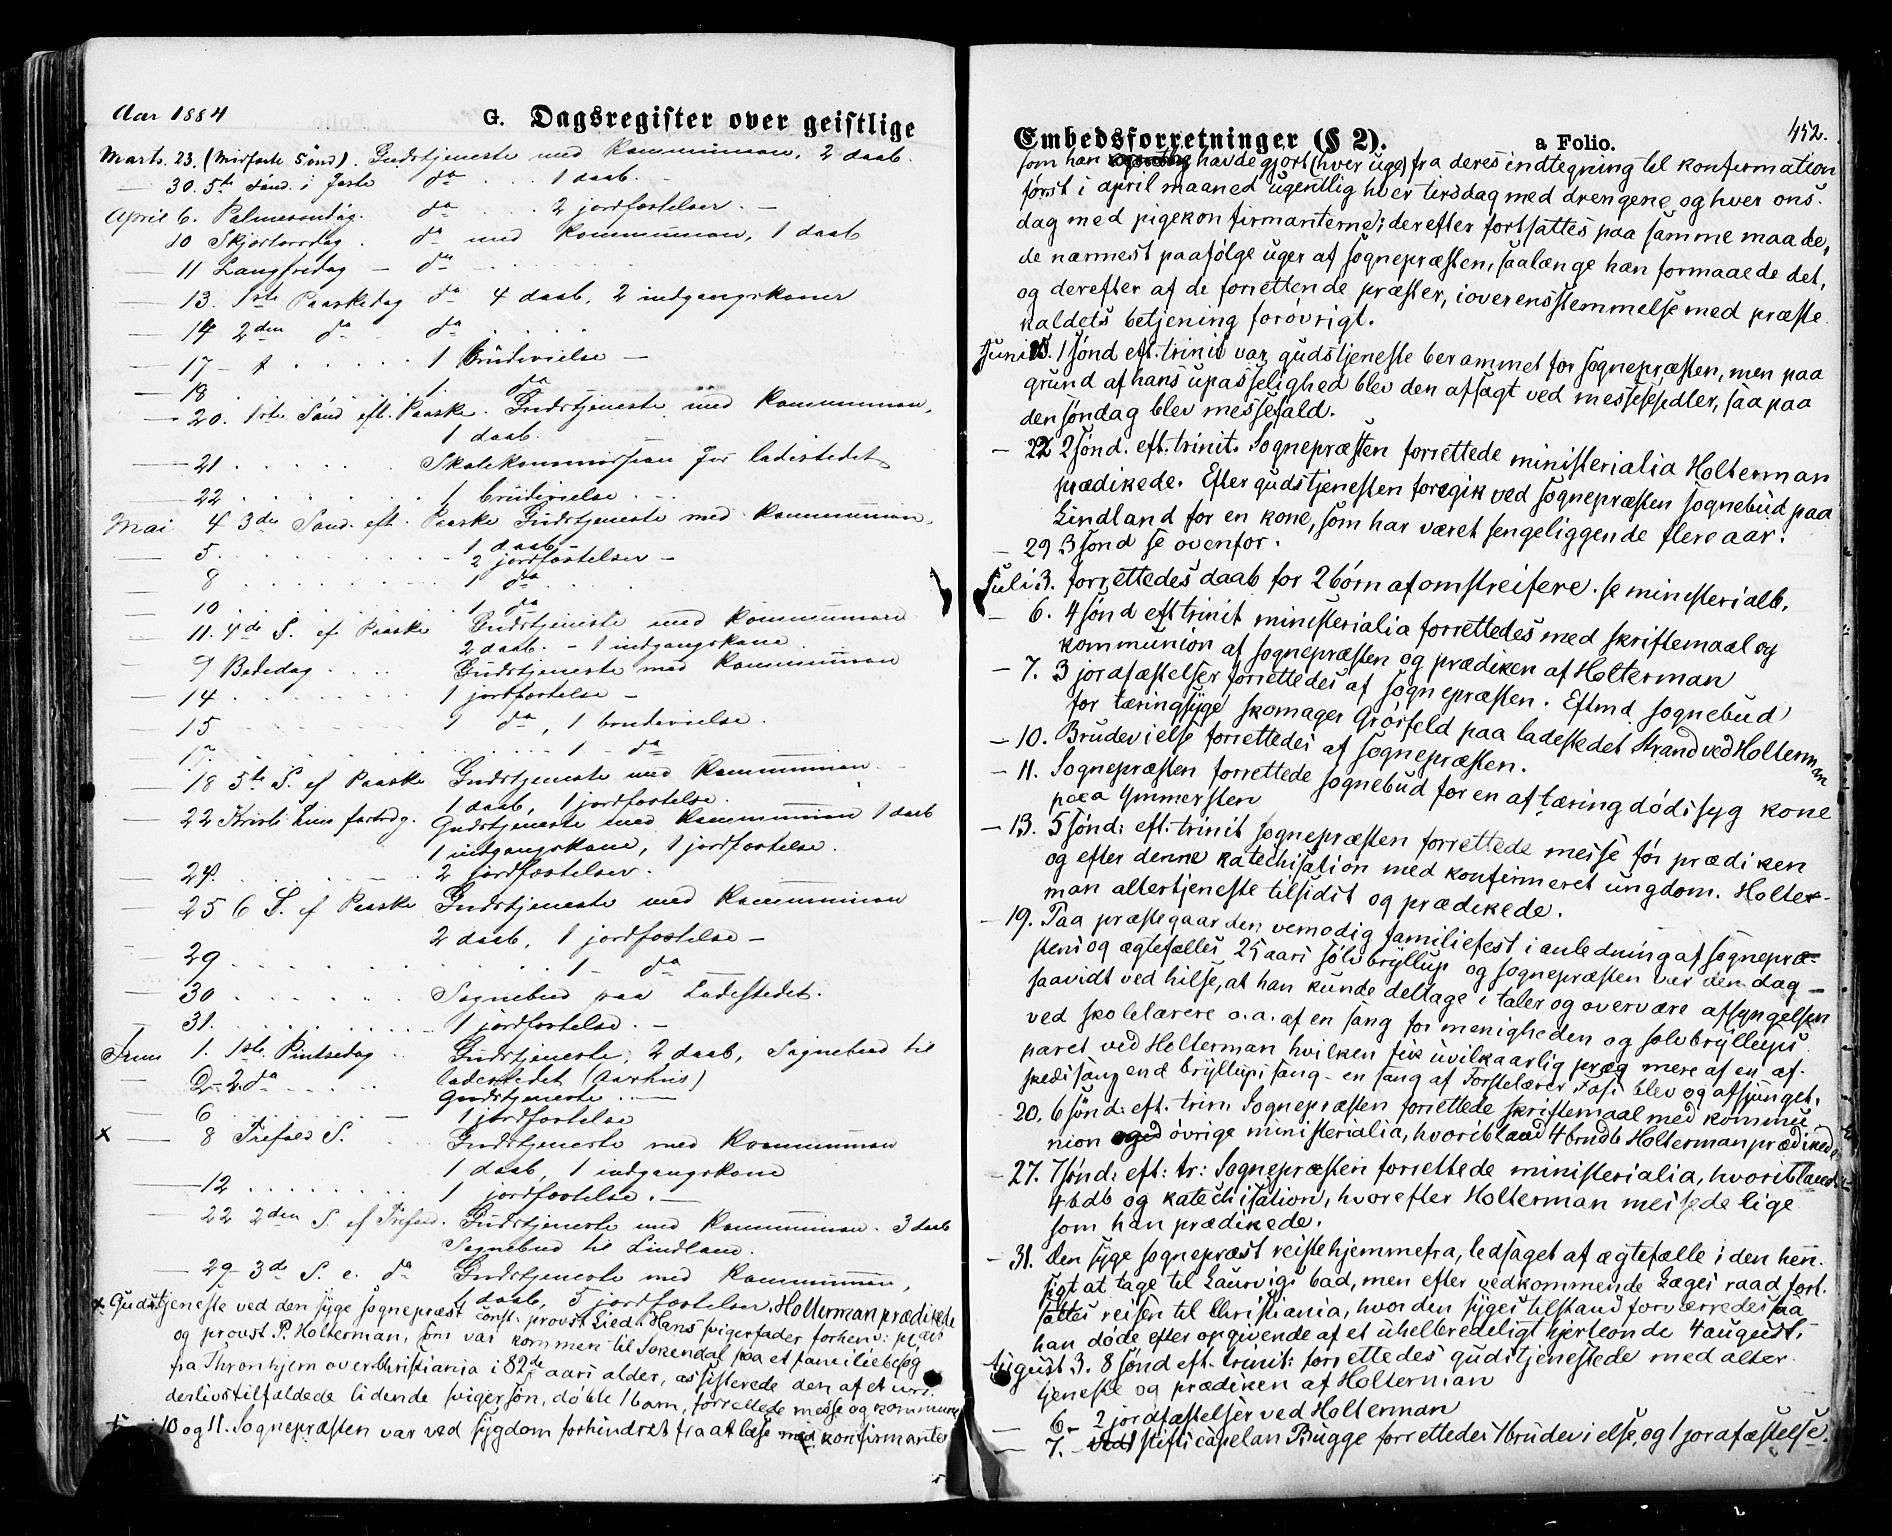 Aar 1884
G. Dagsregister over geistlige
Marts. 23. (Midfaste Sönd). Gudstjeneste med Kommunion, 2 daab.
— 30. 5te Sönd. i Faste da . . . 1 daab.
April 6. Palmesøndag. da . . . 2 jordfæstelser. —
10 Skjærtorsdag . da med Kommunion, 1 daab
— 11 Langfredag — da — . . . . .
— 13. 1ste Paaskedag da 4 daab, 2 indgangskoner
— 14 2den da — da . . . .
— 17 — . . . . 1 Brudevielse —
— 18 . . . . . 1. da
— 20. 1ste Sönd eft. Paaske. Gudstjeneste med Kommunion,
1 daab.
— 21 . . . . . . Skolekommission for ladestedet
— 22 . . . . . . 1 brudevielse . — .
Mai 4 3die Sönd. eft. Paaske Gudstjeneste med Kommunion,
1 daab —
— 5. . . . . . . 2 jordfæstelser —
— 8 . . . . . . 1 da . . . .
— 10 . . . . . . 1 da
— 11. 4de S. ef Paaske Gudstjeneste med Kommunion
2 daab. — 1 indgangskone
— 9 Bededag . . . . Gudstjeneste med Kommunion
— 14 . . . . . . 1 jordfæstelse —
— 15 . . . . . . 1 da, 1 brudevielse.
— 17. . . . . . . 1 — da
— 18 5te S. ef Paaske Gudstjeneste med Kommunion
1 daab, 1 jordfæstelse.
— 22 Kristi Him fartsdg. Gudstjeneste med Kommunion 1 daab
1 indgangskone, 1 jordfæstelse.
— 24. . . . . . . 2 jordfæstelser.
— 25 6 S. ef Paaske Gudstjeneste med Kommunion
2 daab, 1 jordfæstelse —
— 29 . . . . . . 1 — da
— 30 . . . . . . Sognebud paa Ladestedet.
— 31. . . . . . . 1 jordfæstelse. —
Juni 1. 1ste Pintsedag . . Gudstjeneste, 2 daab, Sognebud til
— 2 — 2. da . . . . ladestedet (Aarhus)
Gudstjeneste . . —
— 6 . . . . . . 1 jordfæstelse
x — 8 Trefold S. . . Gudstjeneste med Kommunion
1 daab, 1 indgangskone
— 12 . . . . . . 1 jordfæstelse. —
— 22 2den S. ef Trefold. Gudstjeneste med Kommunion. 3 daab
Sognebud til Lindland.
— 29 — 3de S. e. da Gudstjeneste med Kommunion,
1 daab, 5 jordfæstelser, Holterman prædikede
x Gudstjeneste ved den syge sognepræst const. provst Lied. Hans svigerfader forhenv:
og provst P. Holterman, som var kommen til Sokndal paa et familiebesøg
fra Thronhjem over Christiania i 82de aars alder, assisterede den af et
derlivstilfældede lidende svigersøn, døbte 1 barn, forrettede messe og kommunion
10 og 11. Sognepræsten var ved sygdom forhindret fra at læse med konfirmanter
Embedsforretninger (§ 2).
a Folio.
452.
som han havde gjort (hver uge) fra deres indtegning til konfirmation
først i april maaned ugentlig hver tirsdag med drengene og hver ons-
dag med pigekonfirmanterne; derefter fortsattes paa samme maade,
de nærmest paafølge uger af sognepræsten, saalænge han formaaede det,
og derefter af de forrettende præster, i overensstemmelse med præste
kaldets betjening forøvrigt.
Juni 15. 1 sønd eft. trinit var gudstjeneste berammet for sognepræsten, men paa
grund af hans upasselighed blev den afsagt ved messesedler, saa paa
den søndag blev messefald.
— 22 2 sønd. eft. trinit. Sognepræsten forrettede ministerialia Holterman
prædikede. Efter gudstjenesten foregik ved sognepræsten sognebud paa
Lindland for en kone, som har været sengeliggende flere aar.
— 29 3 sønd se ovenfor.
Juli 3. forrettedes daab for 2 børn af omstreifere. se ministerialb.
— 6. 4 sønd eft trinit ministerialia forrettedes med skriftemaal og
kommunion af sognepræsten og prædiken af Holterman
— 7. 3 jordfæstelser forrettedes af sognepræsten. Eftmd sognebud
for tæringsyge skomager Grösfeld paa ladestedet Strand ved Holterman
— 10. Brudevielse forrettedes af sognepræsten.
— 11. Sognepræsten forrettede sognebud for en af tæring dødssyg kone
paa Ymmersten
— 13. 5 sønd: eft: trinit sognepræsten forrettede messe før prædiken
og efter denne katechisation med konfirmeret ungdom. Holter-
man altertjeneste tilsidst og prædikede.
— 19. Paa præstegaarden vemodig familiefest i anledning af sognepræ-
stens og ægtefælles 25 aars sølvbryllup og sognepræsten var den dag —
saavidt ved hilse, at han kunde deltage i taler og overvære afsyngelsen
ved skolelærere o. a. af en sang for menigheden og solvbryllups
paret ved Holterman hvilken fik uvilkaarlig præg mere af en af-
skedssang end bryllupssang — en sang af Forstelærer Foss blev og afsjunget.
20. 6 sønd: eft. trin. Sognepræsten forrettede skriftemaal med kommu
nion øvrige ministerialia, hvoriblandt 4 brndb Holterman prædikede
— 27. 7 sønd: eft: tr: Sognepræsten forrettede ministerialia, hvoriblandt
4 bdb og katechisation, hvorefter Holterman messede lige
som han prædikede.
— 31. Den syge sognepræst reiste hjemmefra, ledsaget af ægtefælle i den hen-
sigt at tage til Laurvigs bad, men efter vedkommende Læges raad fort-
sattes reisen til Christiania, hvor den syges tilstand forværredes saa
han døde efter opgivende af et uhelbredeligt hjerteonde 4 august.
August 3. 8 sønd eft. trinit: forrettedes gudstjenestede med alter
tjeneste og prædiken af Holterman
— 6 — 2 jordfæstelser ved Holterman
— 7. — ved stiftscapelan Bugge forrettedes 1 brudevielse, og 1 jordfæstelse.